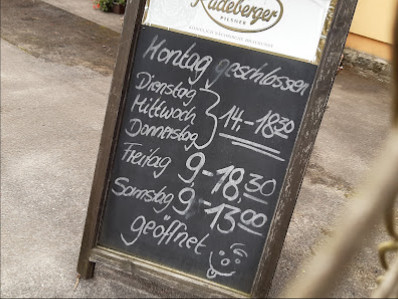 Radeberger
PILSNER
Montag geschlossen
Dienstag
Mittwoch } 14.-18³⁰
Donnerstag
Freitag 9-18.30
Samstag 9-13⁰⁰
geöffnet